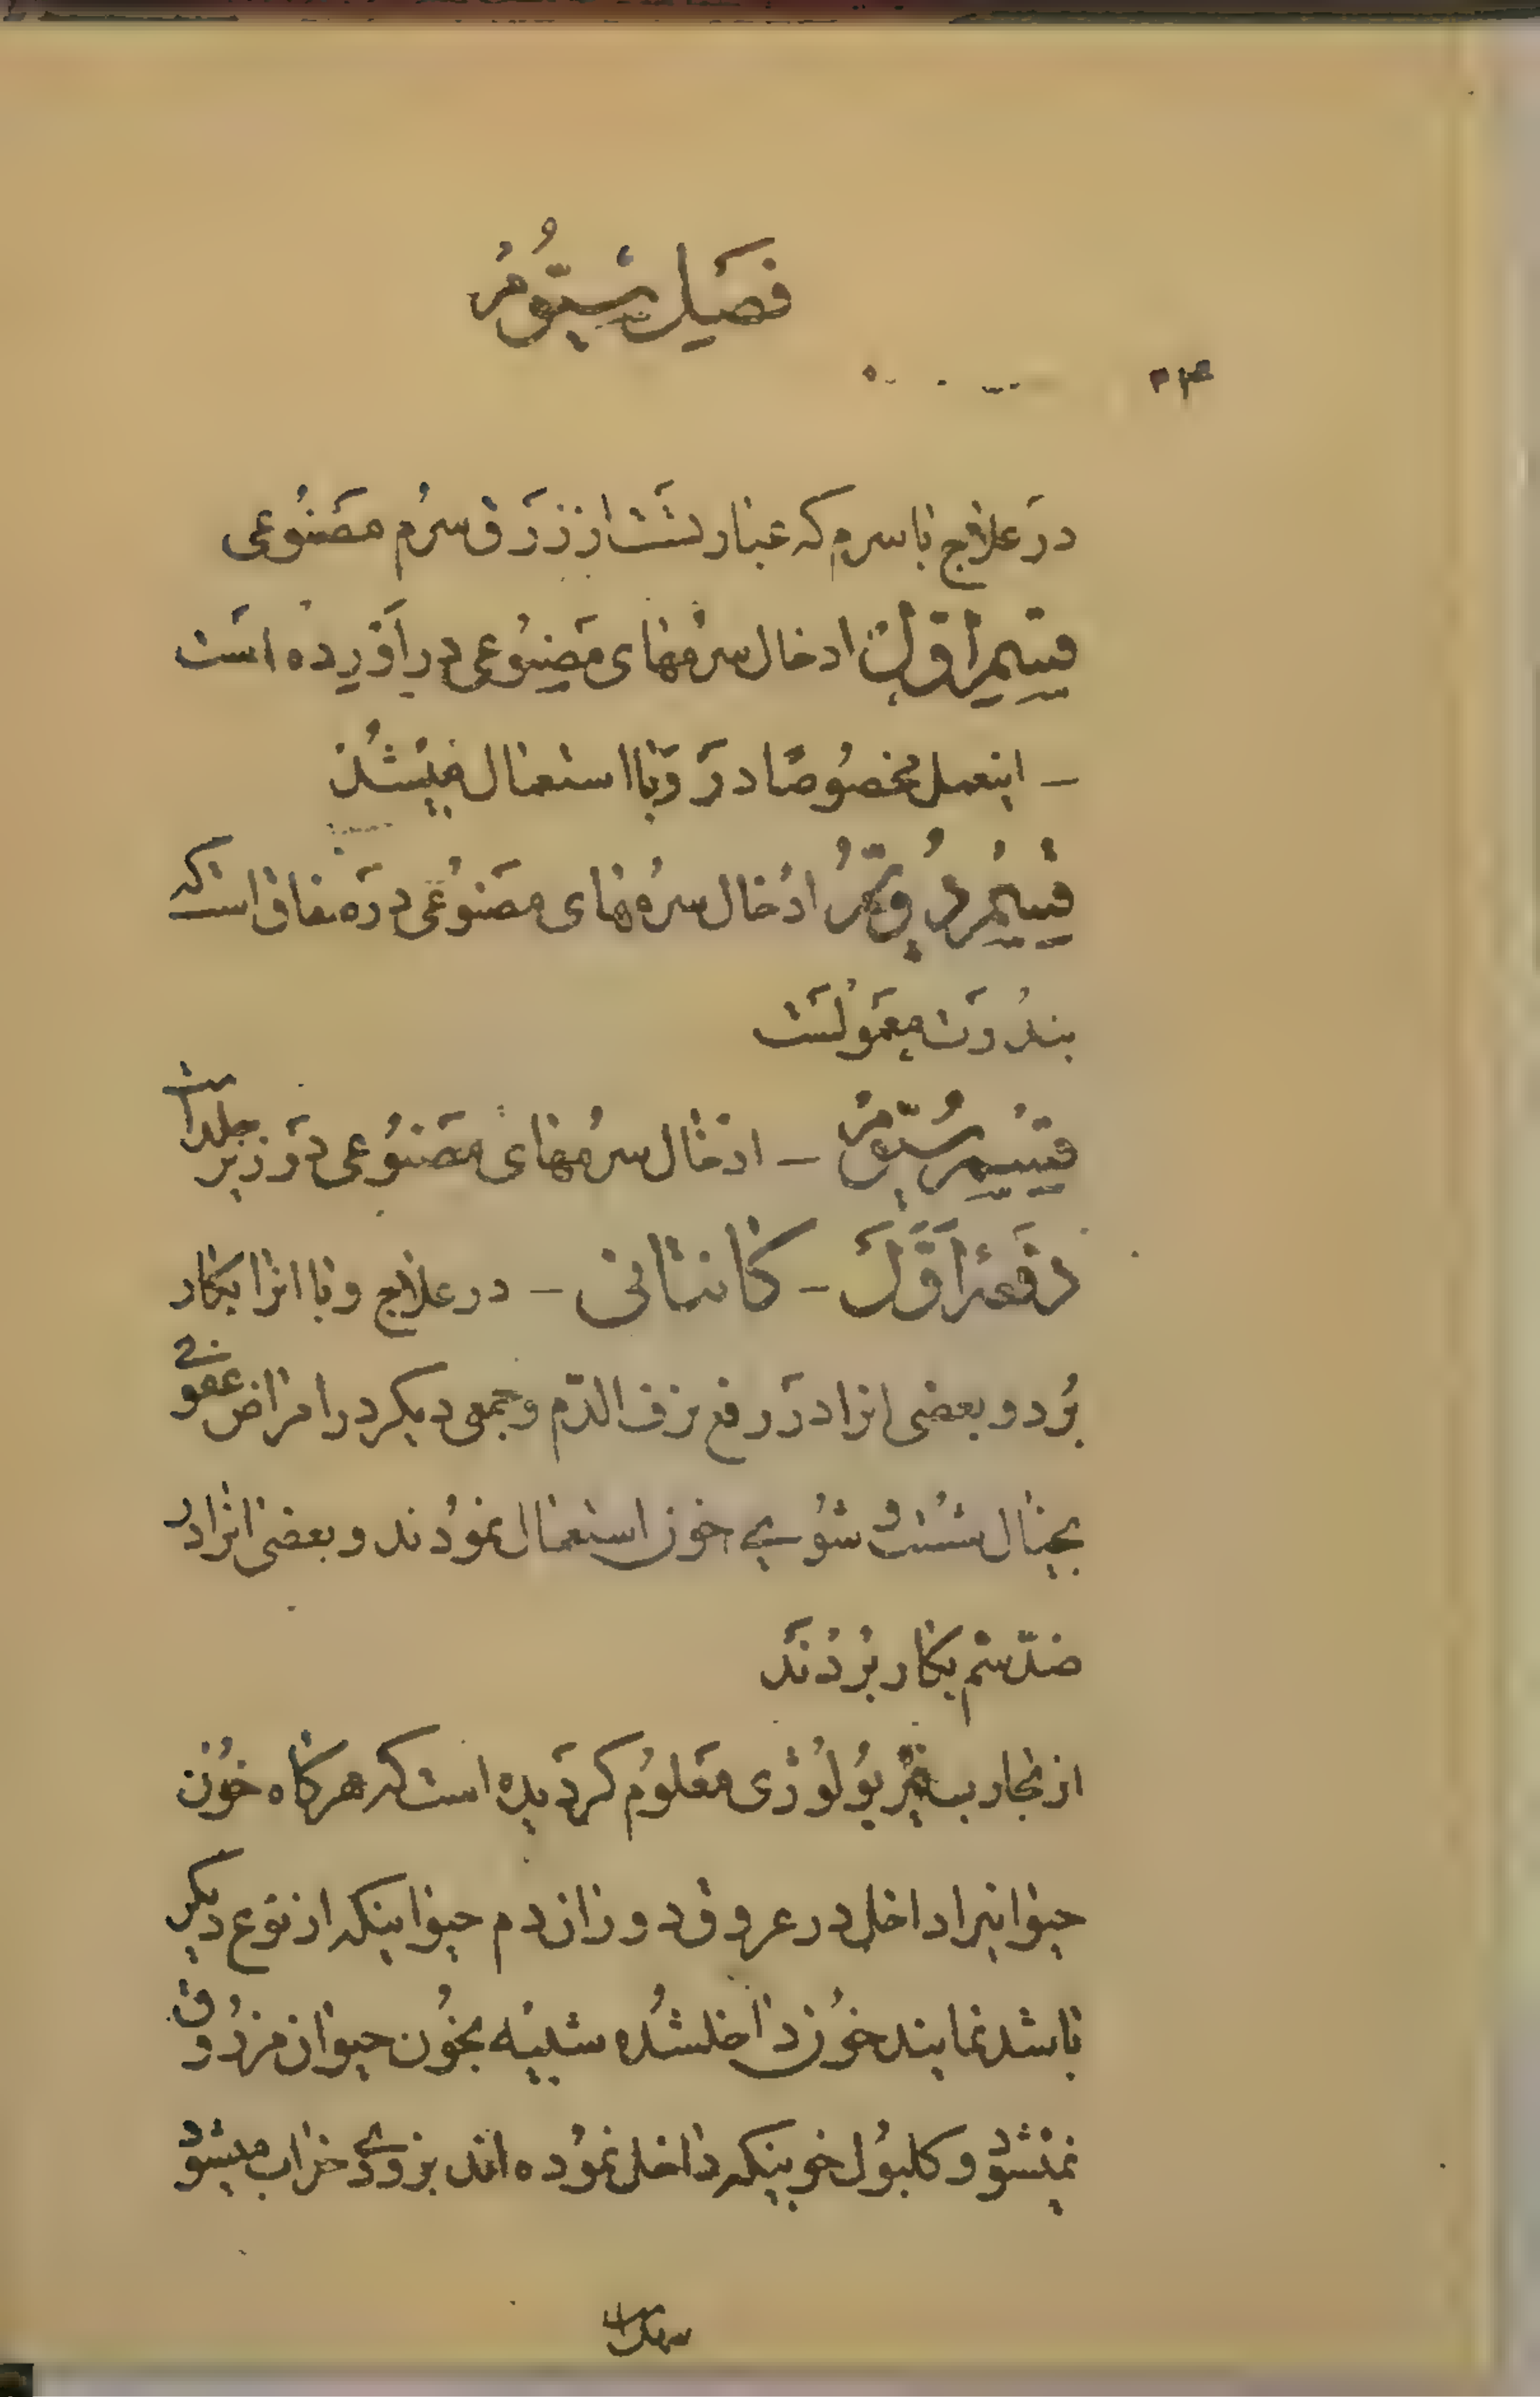 فصل سیّوم
در علاج با سرم که عبارتست از زرق سرم مصنوعی
قسم اوّل ادخال سرمهای مصنوعی در آورده است
– اینعمل مخصوصًا در وبا استعمال میشد
قسم دویّم ادخال سرمهای مصنوعی در صفاق است که
بندرت معمولست
قسم سیّوم – ادخال سرمهای مصنوعی در زیر جلد است
دفعهٔ اوّل – کانتانی – در علاج وبا انرا بکار
برد و بعضی انرا در رفع نزف الدّم و جمعی دیکر در امراض عفونی
بخیال شست و شوی خون استعمال نمودند و بعضی انرا در
ضدّ سم بکار بردند
از تجارب فیزیولوژی معلوم کردیده است که هرکاه خون
حیوانیرا داخل در عروق و دوران دم حیوانیکه از نوع دیکر
باشد نمایند خون داخلشده شبیه بخون حیوان مزروق
نمیشود و کلبول خونیکه داخل نموده اند بزودی خراب میشود